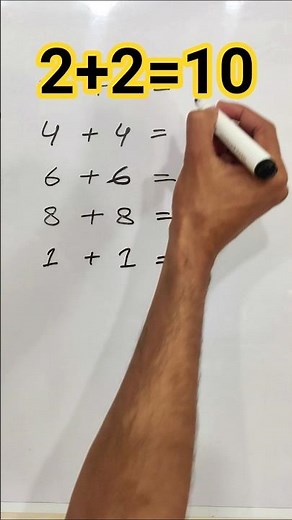 2+2=10
4 + 4 =
6 + 6 =
8 + 8 =
1 + 1 =